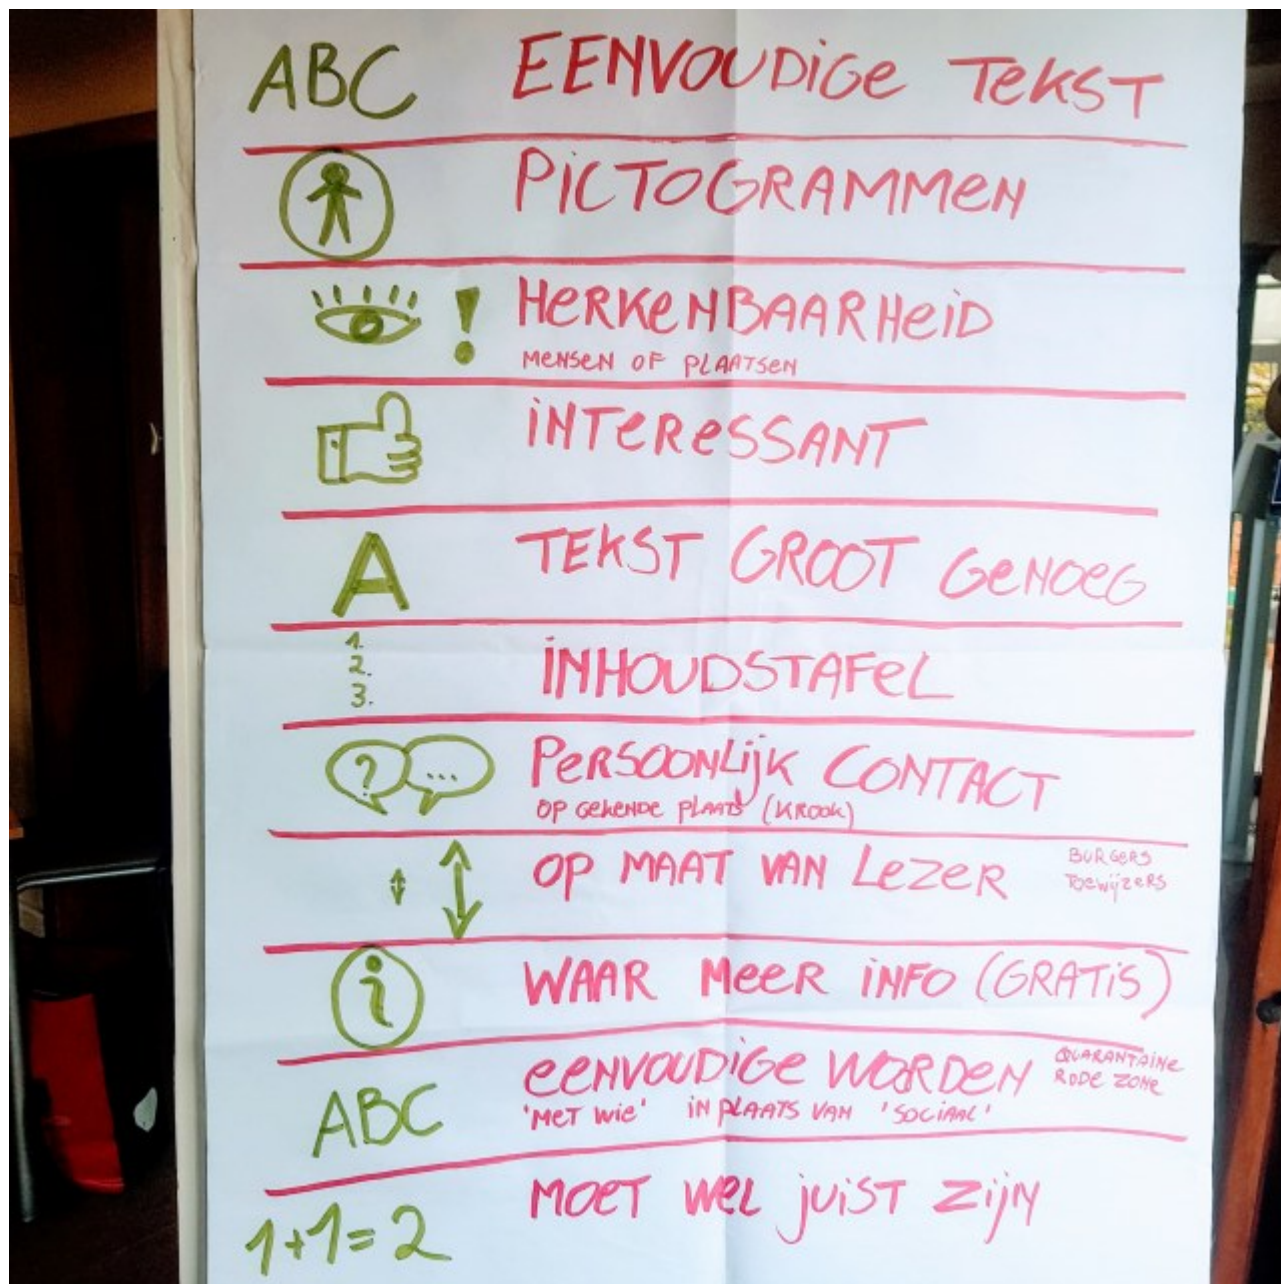 ABC EENVOUDIGE TEKST
PICTOGRAMMEN
! HERKENBAARHEID
MENSEN OF PLAATSEN
INTERESSANT
A TEKST GROOT GENOEG
1.
2.
3.
INHOUDSTAFEL
? ... PERSOONLIJK CONTACT
OP GEKENDE PLAATS (KROOK)
OP MAAT VAN LEZER
BURGERS
TOEWIJZERS
i WAAR MEER INFO (GRATIS)
ABC EENVOUDIGE WORDEN
QUARANTAINE
RODE ZONE
'MET WIE' IN PLAATS VAN 'SOCIAAL'
1+1=2 MOET WEL JUIST ZIJN